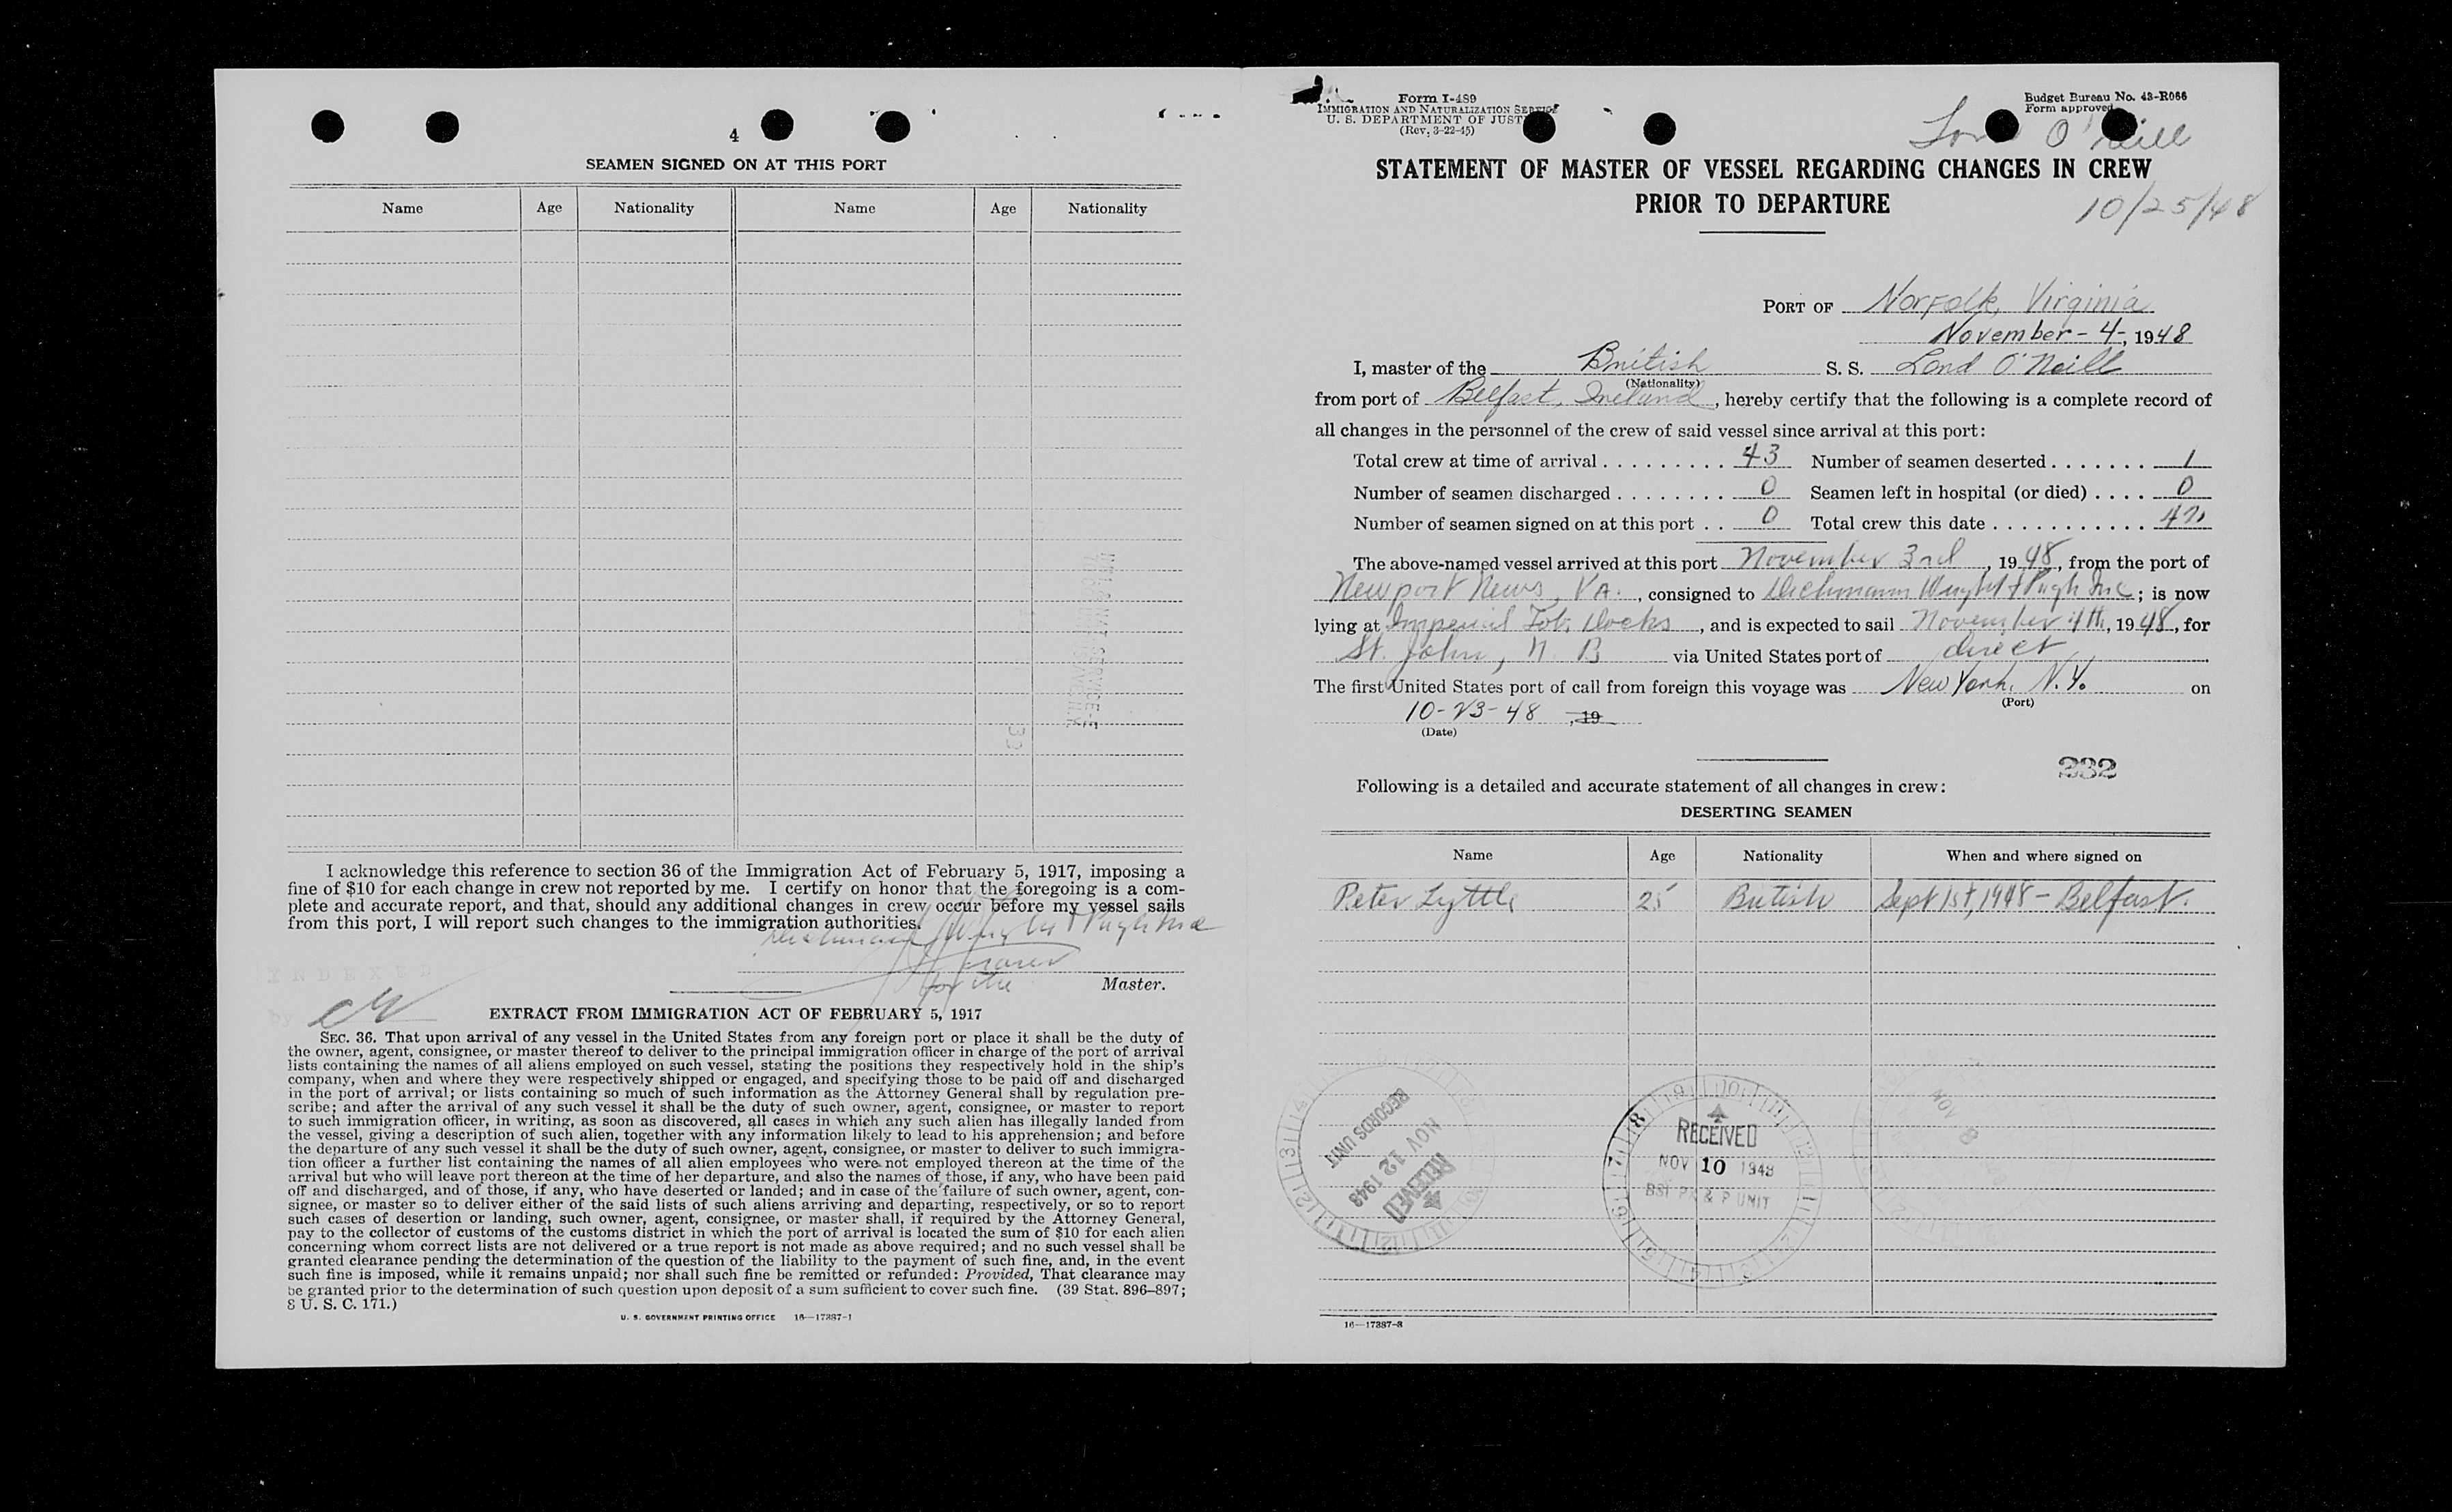 4
SEAMEN SIGNED ON AT THIS PORT
Name Age Nationality Name Age Nationality
I acknowledge this reference to section 36 of the Immigration Act of February 5, 1917, imposing a
fine of $10 for each change in crew not reported by me. I certify on honor that the foregoing is a com-
plete and accurate report, and that, should any additional changes in crew occur before my vessel sails
from this port, I will report such changes to the immigration authorities.
for the
Master.
INDEXED
by
EXTRACT FROM IMMIGRATION ACT OF FEBRUARY 5, 1917
SEC. 36. That upon arrival of any vessel in the United States from any foreign port or place it shall be the duty of
the owner, agent, consignee, or master thereof to deliver to the principal immigration officer in charge of the port of arrival
lists containing the names of all aliens employed on such vessel, stating the positions they respectively hold in the ship's
company, when and where they were respectively shipped or engaged, and specifying those to be paid off and discharged
in the port of arrival; or lists containing so much of such information as the Attorney General shall by regulation pre-
scribe; and after the arrival of any such vessel it shall be the duty of such owner, agent, consignee, or master to report
to such immigration officer, in writing, as soon as discovered, all cases in which any such alien has illegally landed from
the vessel, giving a description of such alien, together with any information likely to lead to his apprehension; and before
the departure of any such vessel it shall be the duty of such owner, agent, consignee, or master to deliver to such immigra-
tion officer a further list containing the names of all alien employees who were not employed thereon at the time of the
arrival but who will leave port thereon at the time of her departure, and also the names of those, if any, who have been paid
off and discharged, and of those, if any, who have deserted or landed; and in case of the failure of such owner, agent, con-
signee, or master so to deliver either of the said lists of such aliens arriving and departing, respectively, or so to report
such cases of desertion or landing, such owner, agent, consignee, or master shall, if required by the Attorney General,
pay to the collector of customs of the customs district in which the port of arrival is located the sum of $10 for each alien
concerning whom correct lists are not delivered or a true report is not made as above required; and no such vessel shall be
granted clearance pending the determination of the question of the liability to the payment of such fine, and, in the event
such fine is imposed, while it remains unpaid; nor shall such fine be remitted or refunded: Provided, That clearance may
be granted prior to the determination of such question upon deposit of a sum sufficient to cover such fine. (39 Stat. 896–897;
8 U. S. C. 171.)
U. S. GOVERNMENT PRINTING OFFICE 16—17387-1
Form I-489
IMMIGRATION AND NATURALIZATION SERVICE
U. S. DEPARTMENT OF JUST
(Rev. 3-22-45)
Budget Bureau No. 43-R066
Form approved
Lor O'Neill
STATEMENT OF MASTER OF VESSEL REGARDING CHANGES IN CREW
PRIOR TO DEPARTURE
10/25/48
PORT OF Norfolk, Virginia
November - 4-, 1948
I, master of the British S. S. Lord O'Neill
(Nationality)
from port of Belfast, Ireland, hereby certify that the following is a complete record of
all changes in the personnel of the crew of said vessel since arrival at this port:
Total crew at time of arrival . . . . . . . . . 43 Number of seamen deserted . . . . . . . 1
Number of seamen discharged . . . . . . . . 0 Seamen left in hospital (or died) . . . . 0
Number of seamen signed on at this port . . 0 Total crew this date . . . . . . . . . . . 42
The above-named vessel arrived at this port November 3rd, 1948, from the port of
Newport News, VA., consigned to Dichmann Wright & Pugh Inc; is now
lying at Imperial Tob. Docks, and is expected to sail November 4th, 1948, for
St. John, N. B via United States port of direct.
The first United States port of call from foreign this voyage was New York, N.Y. on
(Port)
10-23-48, 19
(Date)
232
Following is a detailed and accurate statement of all changes in crew:
DESERTING SEAMEN
Name Age Nationality When and where signed on
Peter Lyttle 25 British Sept 1st, 1948 - Belfast.
RECORDS UNIT
NOV 12 1948
RECEIVED
RECEIVED
NOV 10 1948
UNIT
NOV 8
16—17387-3